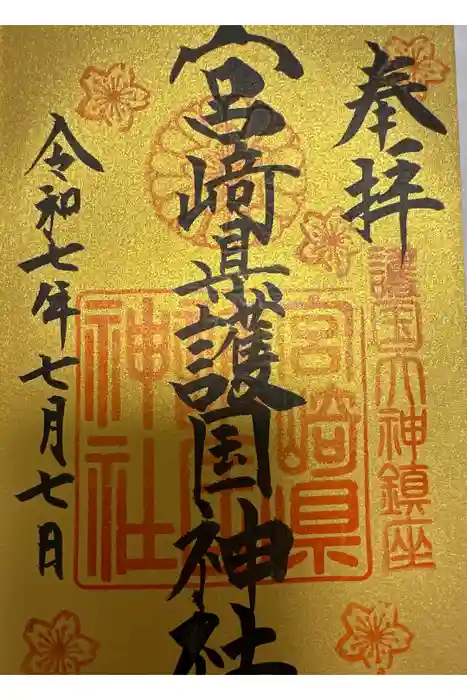 奉拝
護国大神鎮座
宮崎県護国神社
宮崎県
護国
神社
令和七年七月七日